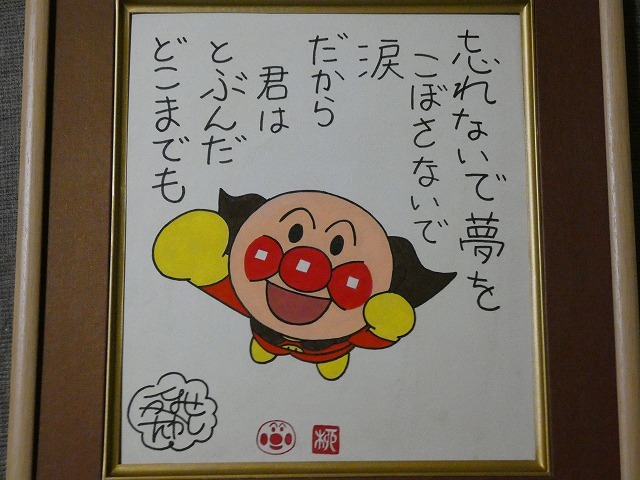 忘れないで夢を
こぼさないで
涙
だから
君は
とぶんだ
どこまでも